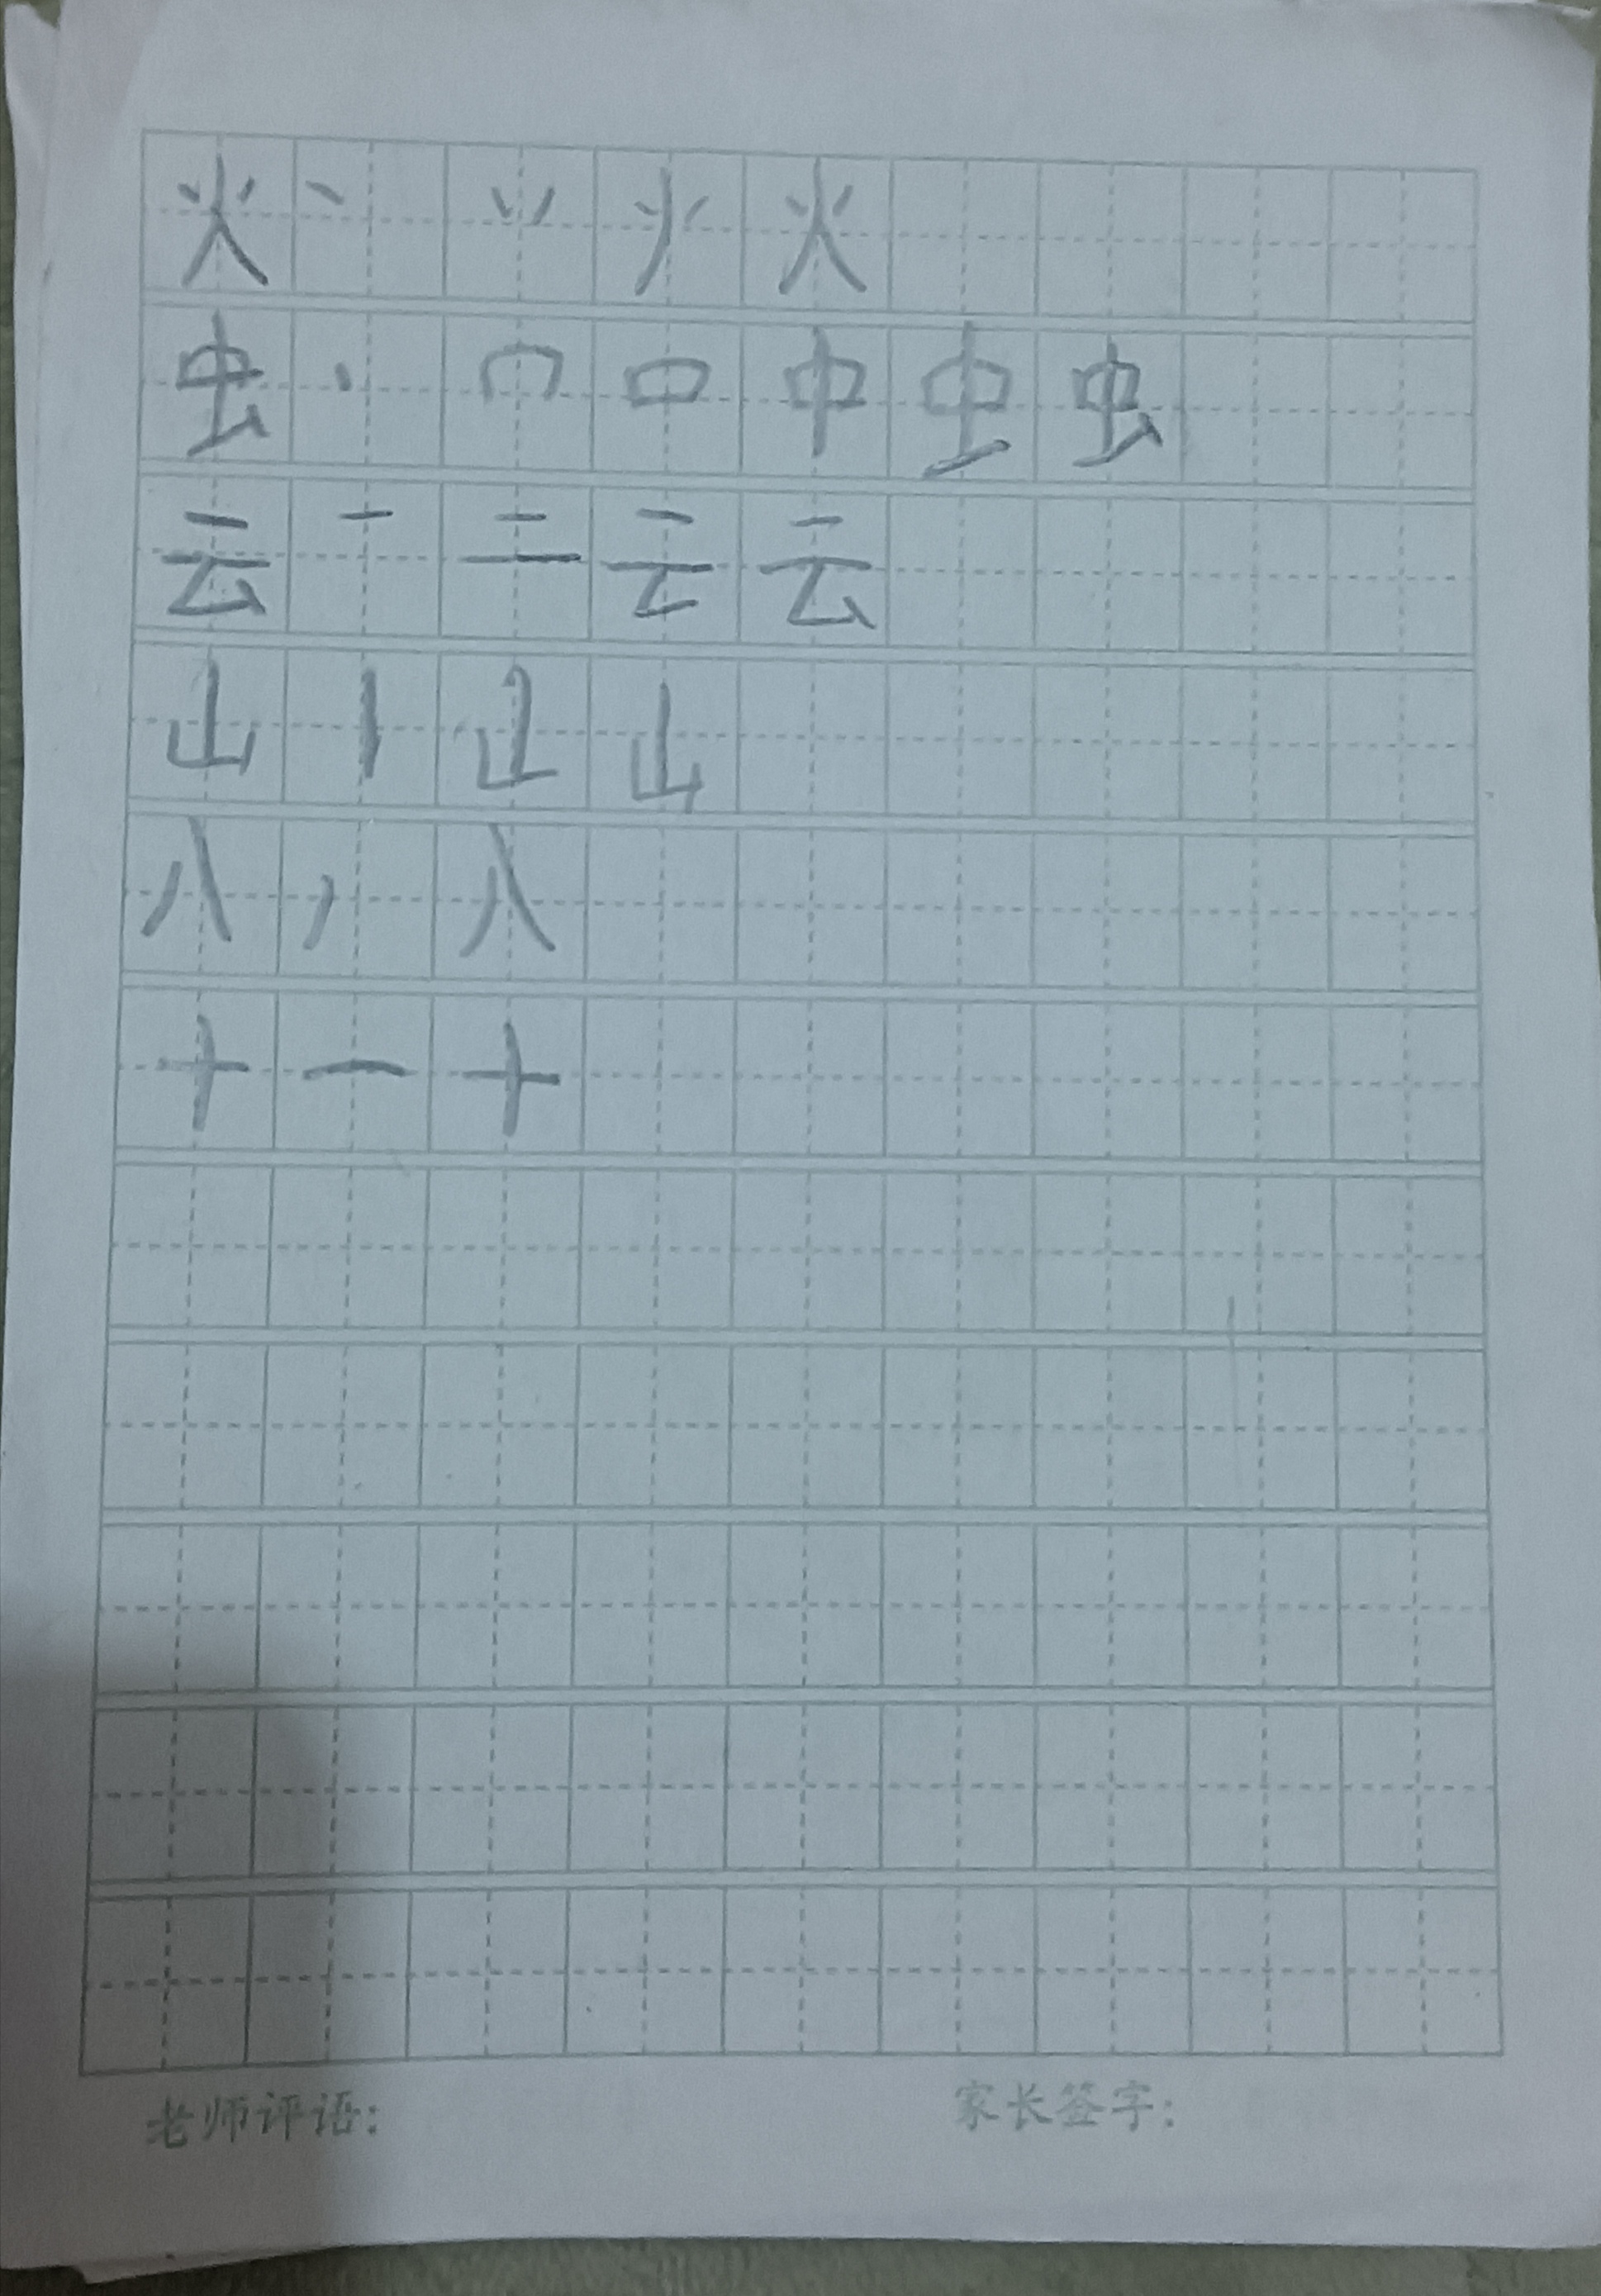 火 丶 丷 火
虫 丨 冂 口 中 虫
云 一 二 云
山 丨 山
八 丿 八
十 一 十
老师评语: 家长签字: